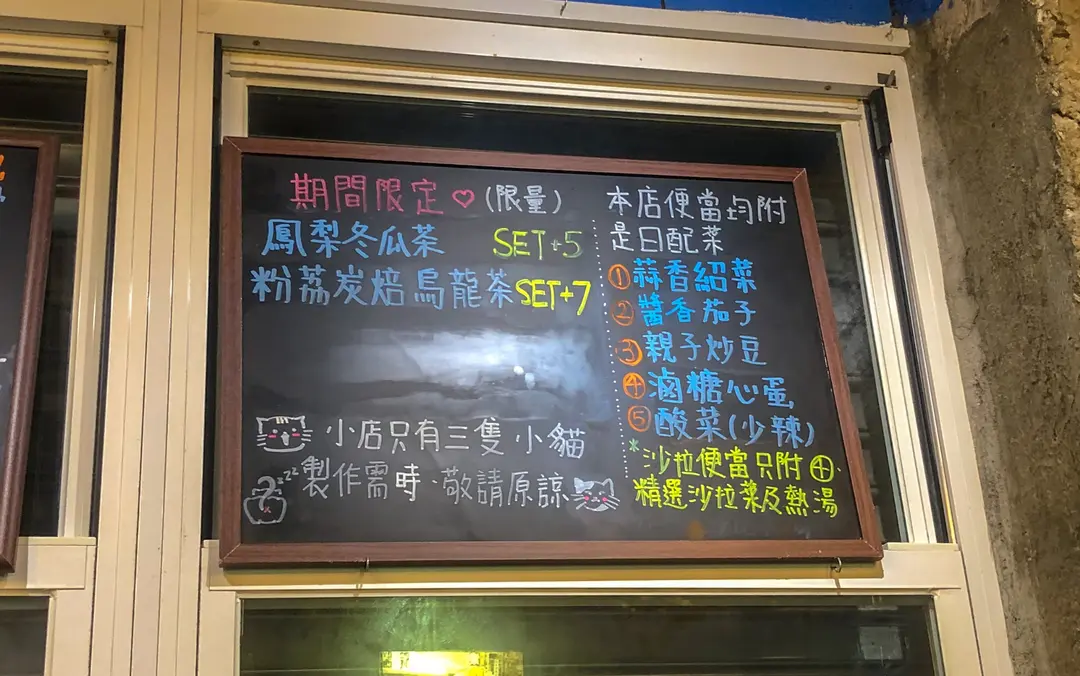 期間限定♡(限量)
鳳梨冬瓜茶 SET+5
粉荔炭焙烏龍茶 SET+7
小店只有三隻小貓
製作需時，敬請原諒
本店便當均附
是日配菜
①蒜香紹菜
②醬香茄子
③親子炒豆
④滷糖心蛋
⑤酸菜(少辣)
*沙拉便當只附④.
精選沙拉菜及熱湯